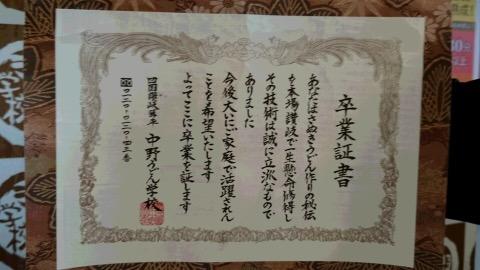 卒業証書
あなたはさぬきうどん作りの秘伝
を本場讃岐で一生懸命修得し
その技術は誠に立派なもので
ありました
今後大いにご家庭で活躍されん
ことを希望いたします
よってここに卒業を証します
中野うどん学校